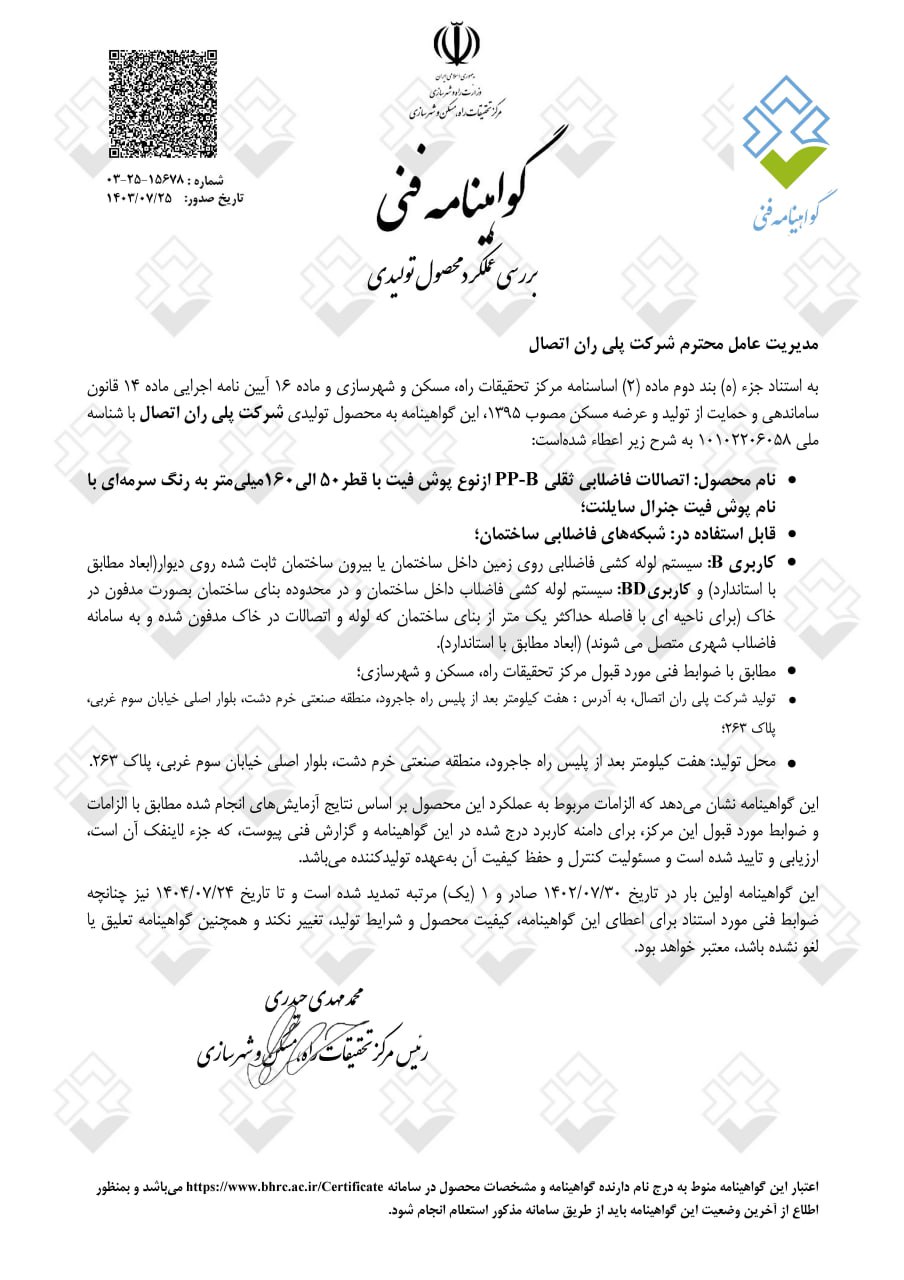 جمهوری اسلامی ایران
وزارت راه و شهرسازی
مرکز تحقیقات راه، مسکن و شهرسازی
شماره : ۱۵۶۷۸-۲۵-۰۳
تاریخ صدور: ۱۴۰۳/۰۷/۲۵
گواهینامه فنی
گواهینامه فنی
بررسی عملکرد محصول تولیدی
مدیریت عامل محترم شرکت پلی ران اتصال
به استناد جزء (ه) بند دوم ماده (۲) اساسنامه مرکز تحقیقات راه، مسکن و شهرسازی و ماده ۱۶ آیین نامه اجرایی ماده ۱۴ قانون
ساماندهی و حمایت از تولید و عرضه مسکن مصوب ۱۳۹۵، این گواهینامه به محصول تولیدی شرکت پلی ران اتصال با شناسه
ملی ۱۰۱۰۲۲۰۶۰۵۸ به شرح زیر اعطاء شده‌است:
• نام محصول: اتصالات فاضلابی ثقلی PP-B ازنوع پوش فیت با قطر۵۰ الی۱۶۰میلی‌متر به رنگ سرمه‌ای با
نام پوش فیت جنرال سایلنت؛
• قابل استفاده در: شبکه‌های فاضلابی ساختمان؛
• کاربری B: سیستم لوله کشی فاضلابی روی زمین داخل ساختمان یا بیرون ساختمان ثابت شده روی دیوار(ابعاد مطابق
با استاندارد) و کاربریBD: سیستم لوله کشی فاضلاب داخل ساختمان و در محدوده بنای ساختمان بصورت مدفون در
خاک (برای ناحیه ای با فاصله حداکثر یک متر از بنای ساختمان که لوله و اتصالات در خاک مدفون شده و به سامانه
فاضلاب شهری متصل می شوند) (ابعاد مطابق با استاندارد).
• مطابق با ضوابط فنی مورد قبول مرکز تحقیقات راه، مسکن و شهرسازی؛
• تولید شرکت پلی ران اتصال، به آدرس : هفت کیلومتر بعد از پلیس راه جاجرود، منطقه صنعتی خرم دشت، بلوار اصلی خیابان سوم غربی،
پلاک ۲۶۳؛
• محل تولید: هفت کیلومتر بعد از پلیس راه جاجرود، منطقه صنعتی خرم دشت، بلوار اصلی خیابان سوم غربی، پلاک ۲۶۳.
این گواهینامه نشان می‌دهد که الزامات مربوط به عملکرد این محصول بر اساس نتایج آزمایش‌های انجام شده مطابق با الزامات
و ضوابط مورد قبول این مرکز، برای دامنه کاربرد درج شده در این گواهینامه و گزارش فنی پیوست، که جزء لاینفک آن است،
ارزیابی و تایید شده است و مسئولیت کنترل و حفظ کیفیت آن به‌عهده تولیدکننده می‌باشد.
این گواهینامه اولین بار در تاریخ ۱۴۰۲/۰۷/۳۰ صادر و ۱ (یک) مرتبه تمدید شده است و تا تاریخ ۱۴۰۴/۰۷/۲۴ نیز چنانچه
ضوابط فنی مورد استناد برای اعطای این گواهینامه، کیفیت محصول و شرایط تولید، تغییر نکند و همچنین گواهینامه تعلیق یا
لغو نشده باشد، معتبر خواهد بود.
محمد مهدی حیدری
رئیس مرکز تحقیقات راه، مسکن و شهرسازی
اعتبار این گواهینامه منوط به درج نام دارنده گواهینامه و مشخصات محصول در سامانه https://www.bhrc.ac.ir/Certificate می‌باشد و بمنظور
اطلاع از آخرین وضعیت این گواهینامه باید از طریق سامانه مذکور استعلام انجام شود.